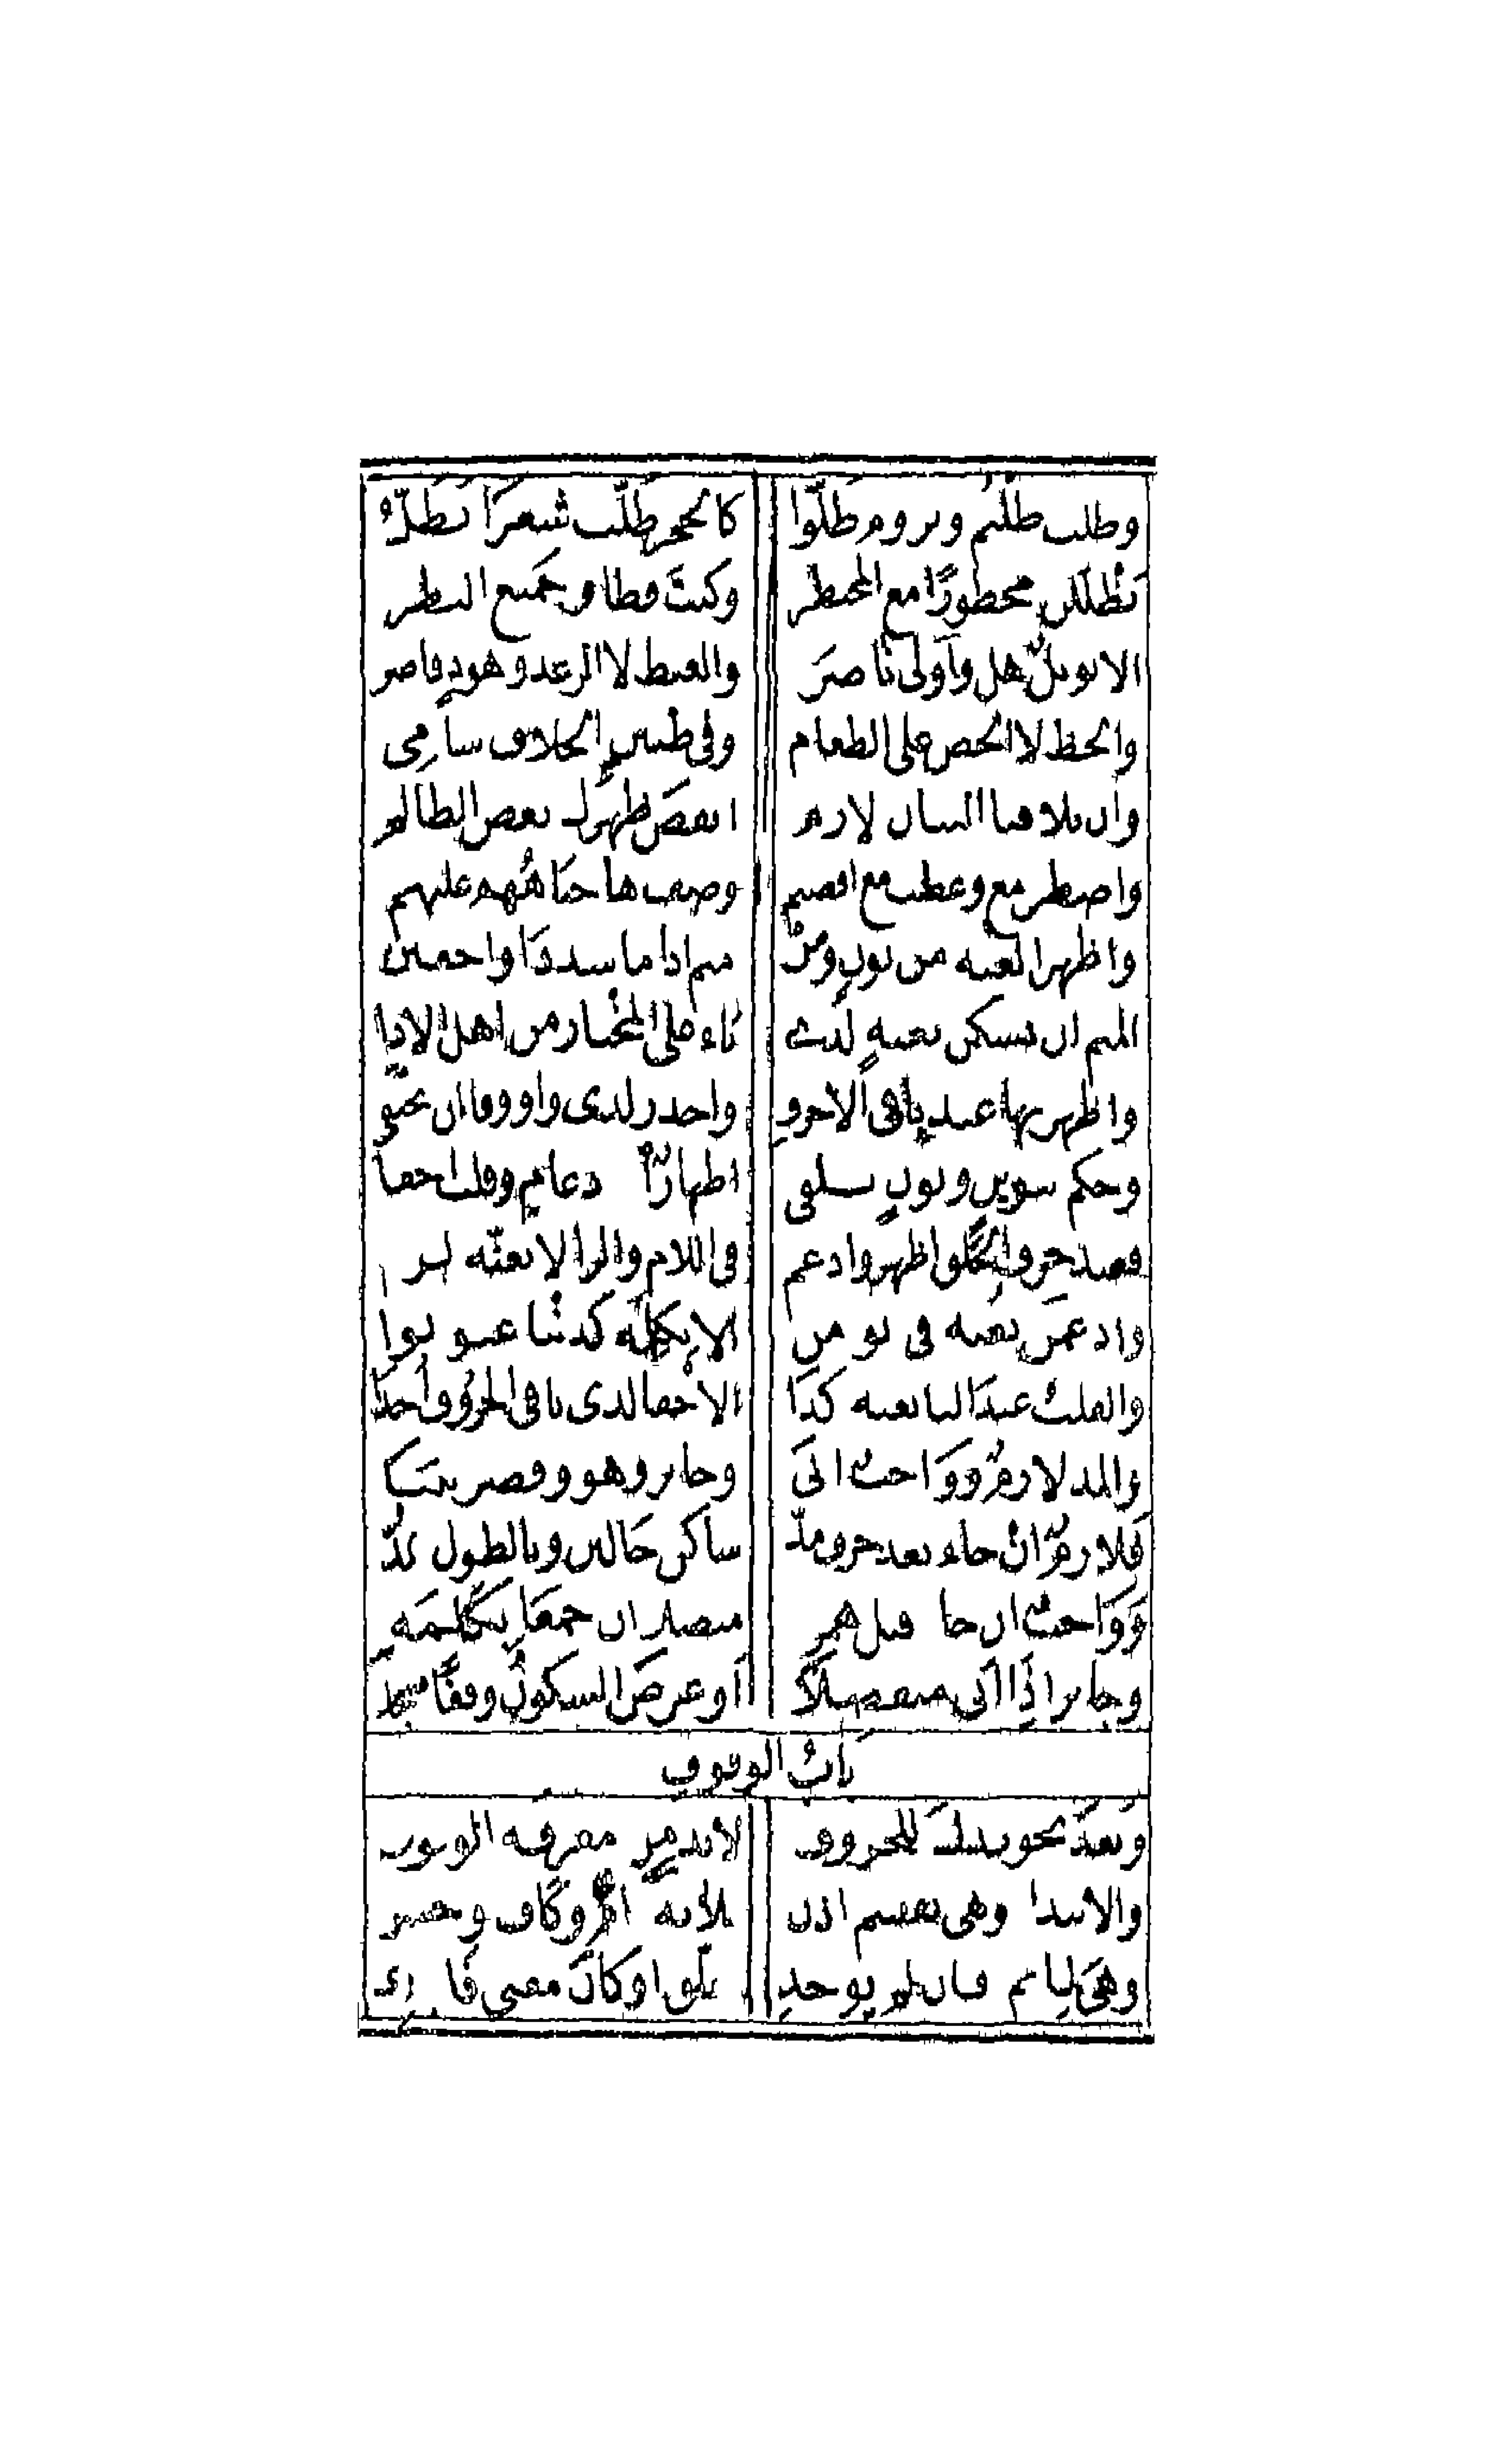 وظلت ظلتم وبروم ظلوا كالحجر ظلت شعرا نظل
يظللن محظورا مع المحتظر وكنت فظا وجميع النظر
الا بويل هل واولى ناضره والغيظ لا الرعد وهود قاصره
والحظ لا الحض على الطعام وفي ظنين الخلاف سامي
وان تلاقيا البيان لازم انقض ظهرك يعض الظالم
واضطر مع وعظت مع افضتم وصف ها جباههم عليهم
واظهر الغنة من نون ومن ميم اذا ما شددا واخفين
الميم ان تسكن بغنة لدى باء على المختار من اهل الادا
واظهرنها عند باقي الاحرف واحذر لدى واو وفا ان تختفي
وحكم تنوين ونون يلفى اظهار ادغام وقلب اخفا
فعند حرف الحلق اظهر وادغم في اللام والرا لا بغنة لزم
وادغمن بغنة في يومن الا بكلمة كدنيا عنونوا
والقلب عند البا بغنة كذا الاخفا لدى باقي الحروف اخذا
والمد لازم وواجب اتى وجائز وهو وقصر ثبتا
فلازم ان جاء بعد حرف مد ساكن حالين وبالطول يمد
وواجب ان جا قبل همزة متصلا ان جمعا بكلمة
وجائز اذا اتى منفصلا او عرض السكون وقفا مسجلا
باب الوقوف
وبعد تجويدك للحروف لا بد من معرفة الوقوف
والابتدا وهي تقسم اذن ثلاثة تام وكاف وحسن
وهي لما تم فان لم يوجد تعلق او كان معنى فابتدي